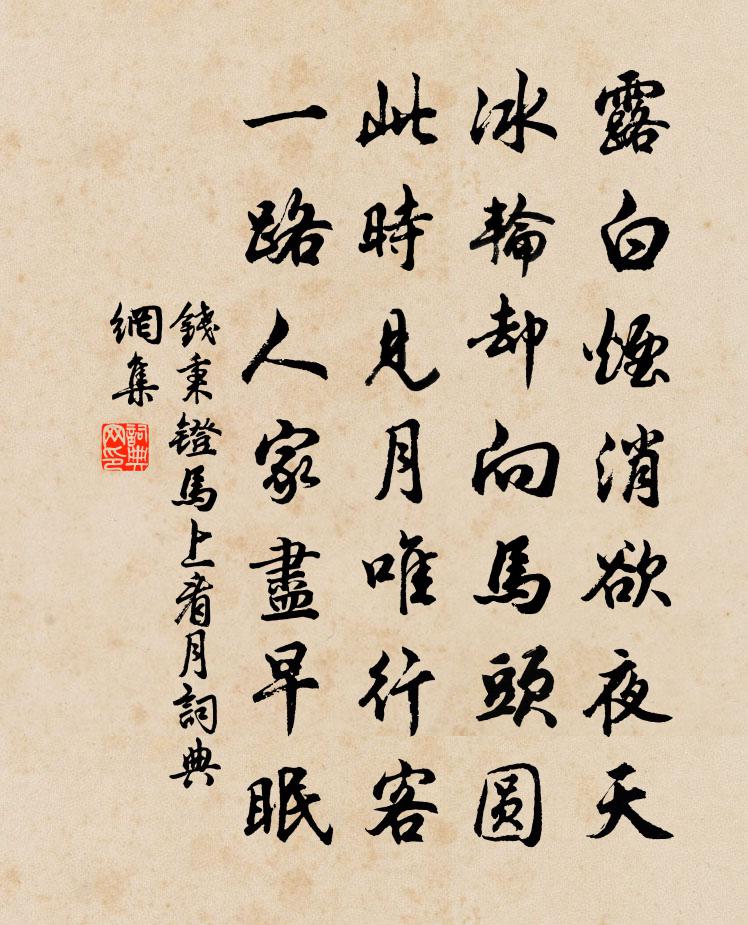 露白煙消欲夜天
冰輪却向馬頭圓
此時見月唯行客
一路人家盡早眠
錢秉鐙馬上看月詞典
網集
詞典
网印